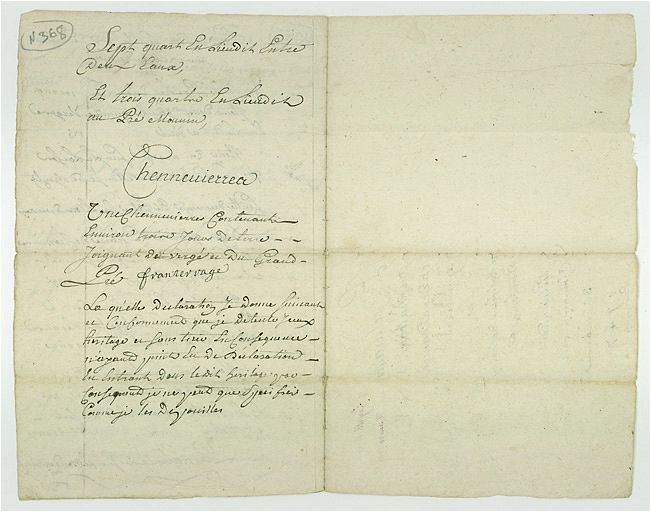 N 368
Sept quart En Lieudit Entre
Deux Eaux,
Et trois quartre En Lieudit
au Pré Mounin,
Chennevierrea
Une Chennevierres Contenante
Environ trois Jours De terre
Joignant de vergé et Du Grand
Pré franterrage
La quelle Declaration Je Donne Suivante
et Conformement que je detente yceux
heritage et Sans titre En Consequence
n'ayant point Eu de Declaration
En Entrant Dans ledit heritage par
Consequand je ne peut que
Comme je les De